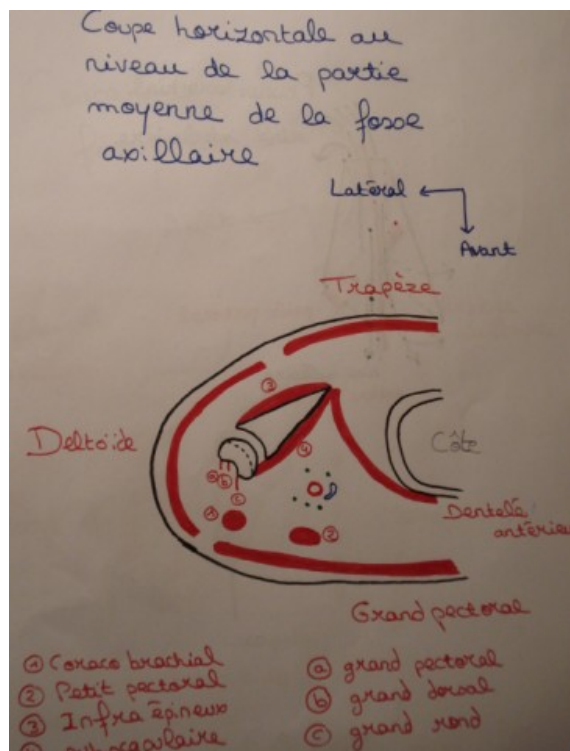 Coupe horizontale au
niveau de la partie
moyenne de la fosse
axillaire
Latéral
Avant
Trapèze
③
Deltoïde
④
Côte
ⓐ
ⓑ
ⓒ
① ②
Dentelé
antérieu
Grand pectoral
① Coraco brachial
② Petit pectoral
③ Infra épineux
ⓐ grand pectoral
ⓑ grand dorsal
ⓒ grand rond